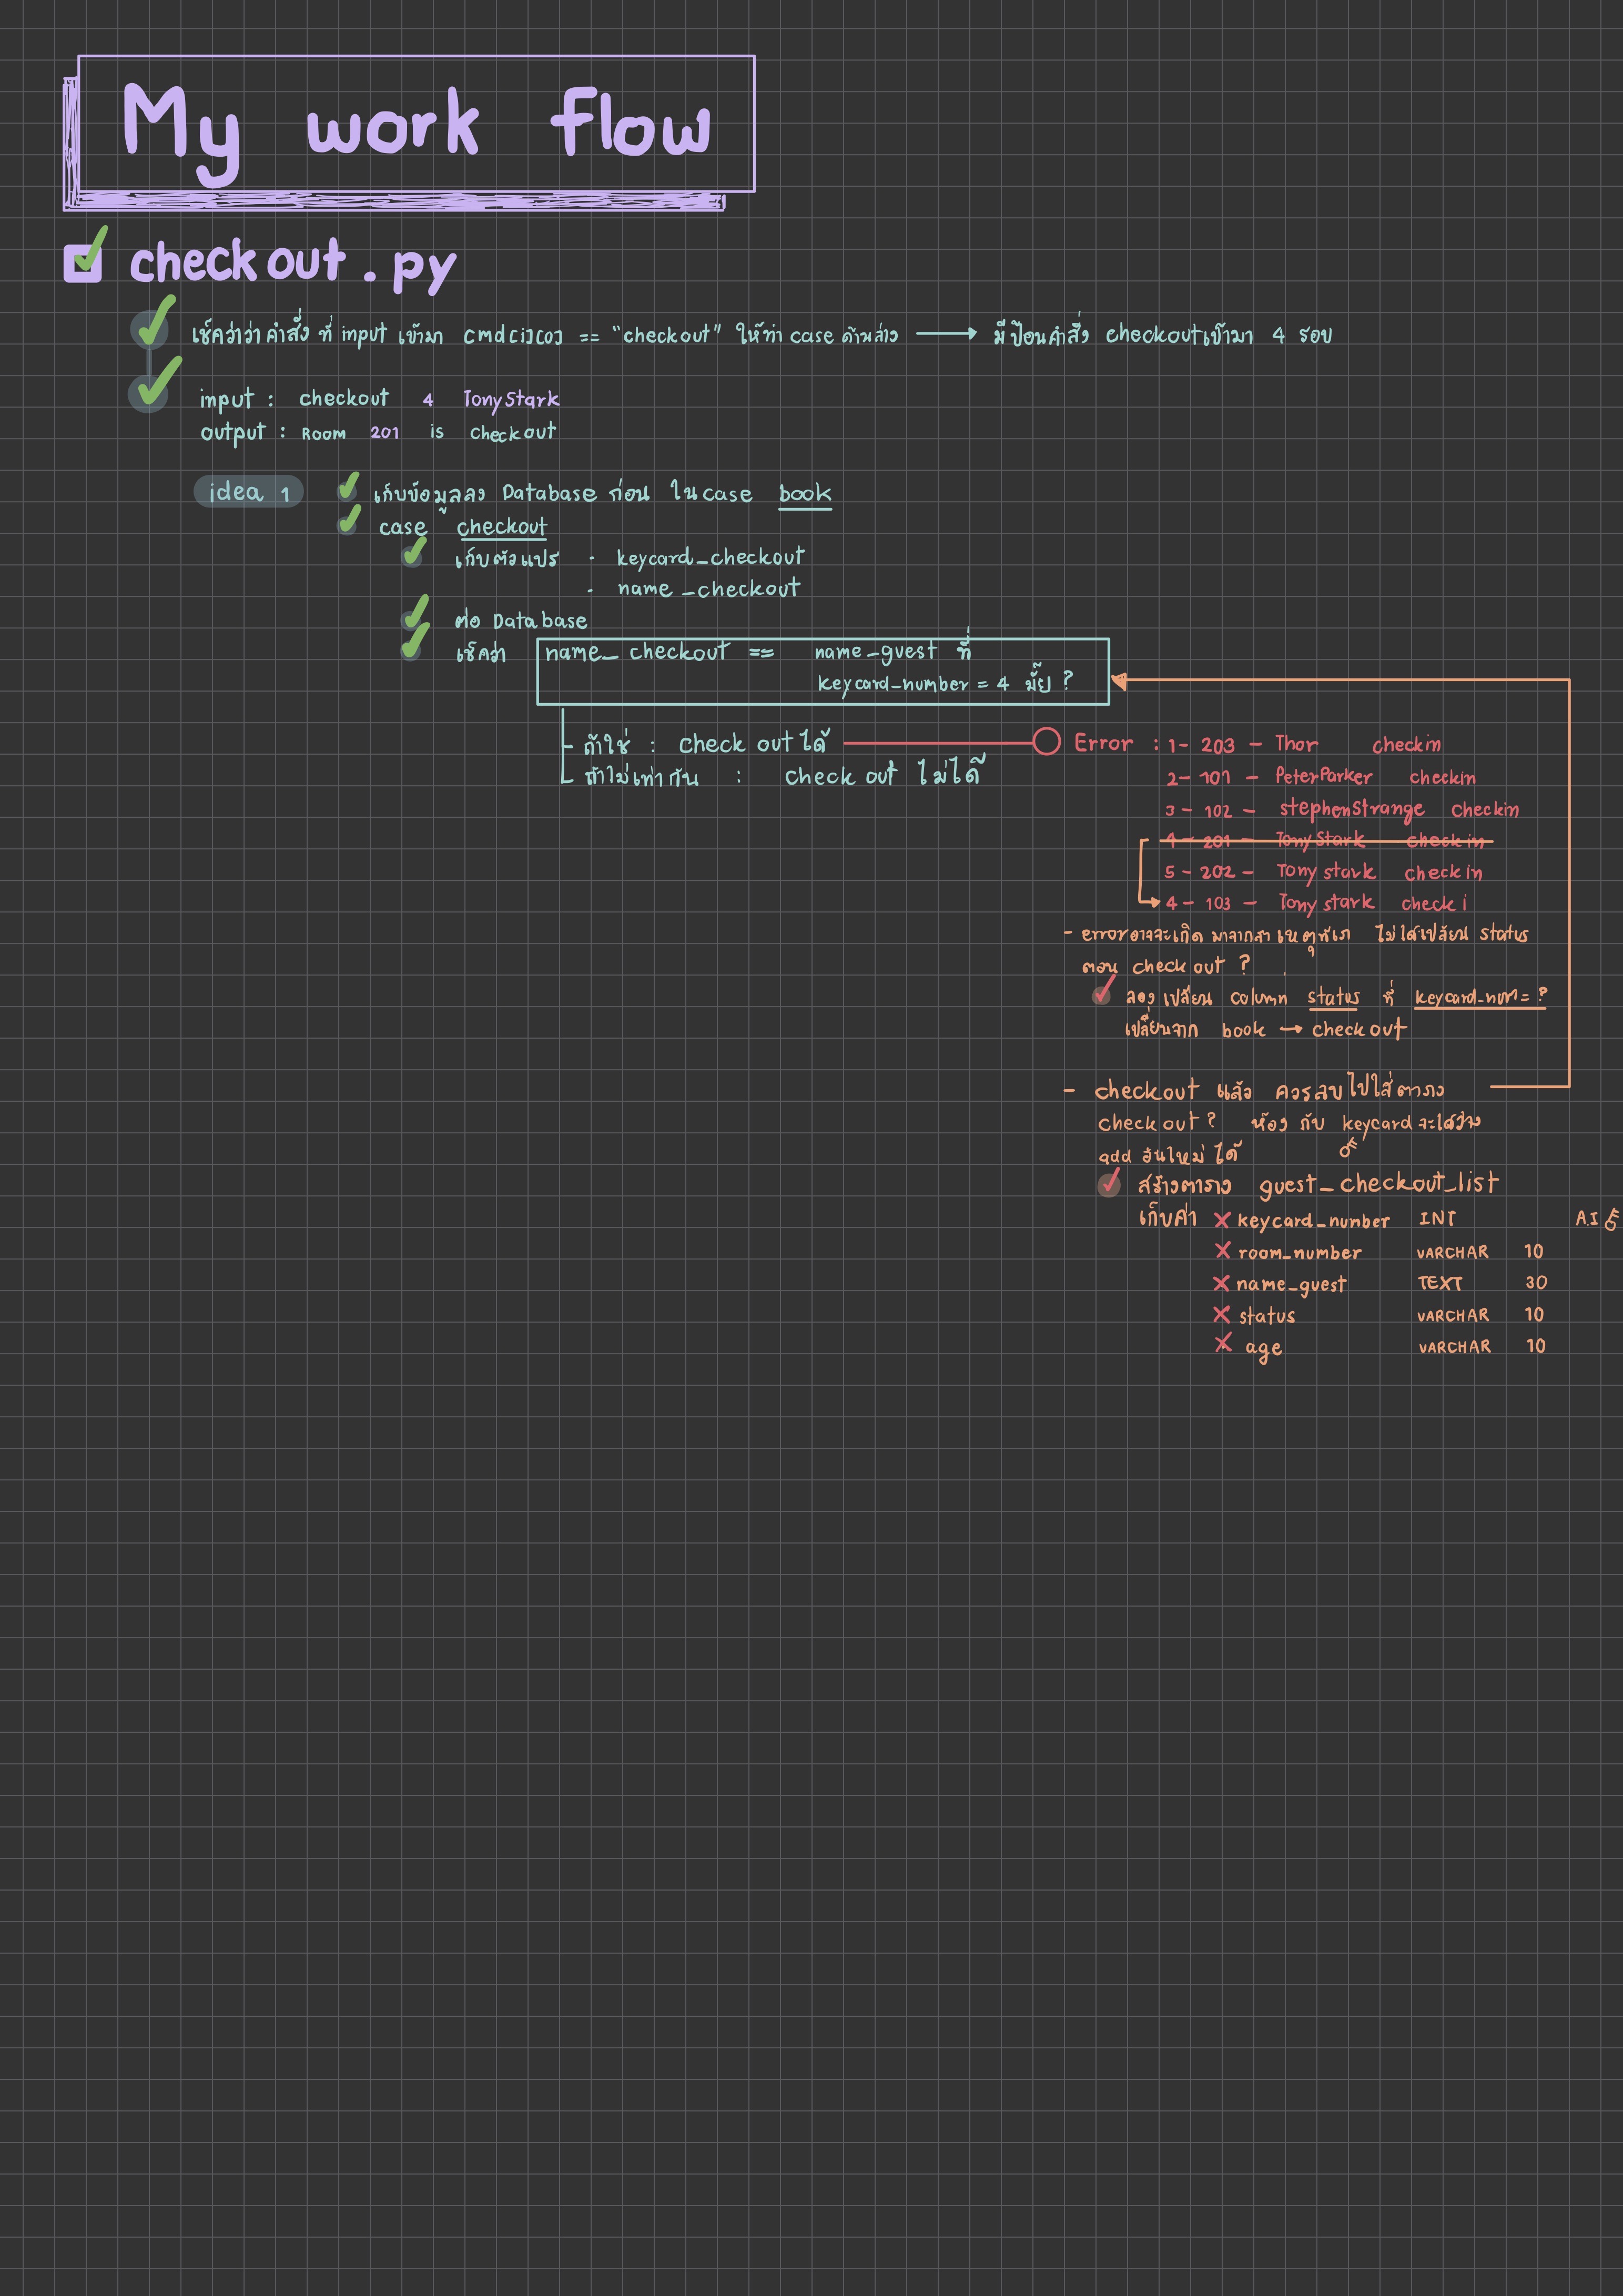 My work flow
checkout.py
เช็คว่าว่าคำสั่ง ที่ input เข้ามา cmd[i][0] == "checkout" ให้ทำ case ด้านล่าง → มีป้อนคำสั่ง checkout เข้ามา 4 รอบ
input : checkout 4 TonyStark
output : Room 201 is checkout
idea 1
เก็บข้อมูลลง Database ก่อน ใน case book
case checkout
เก็บตัวแปร - keycard_checkout
- name_checkout
ต่อ Database
เช็คว่า name_checkout == name_guest ที่
keycard_number = 4 มั๊ย ?
ถ้าใช่ : check out ได้
ถ้าไม่เท่ากัน : check out ไม่ได้
Error : 1 - 203 - Thor checkin
2 - 101 - PeterParker checkin
3 - 102 - stephenstrange checkin
4 - 201 - Tony Stark checkin
5 - 202 - Tony stark checkin
4 - 103 - Tony stark check i
- error อาจจะเกิด มาจากสาเหตุ ไม่ได้เปลี่ยน status
ตอน check out ?
ลอง เปลี่ยน column status ที่ keycard_num = ?
เปลี่ยนจาก book → check out
- checkout แล้ว ควรลบ ไปใส่ตาราง
check out ? ห้อง กับ keycard จะได้ว่าง
add อันใหม่ ได้
สร้างตาราง guest_checkout_list
เก็บค่า × keycard_number INT A.I
× room_number VARCHAR 10
× name_guest TEXT 30
× status VARCHAR 10
× age VARCHAR 10